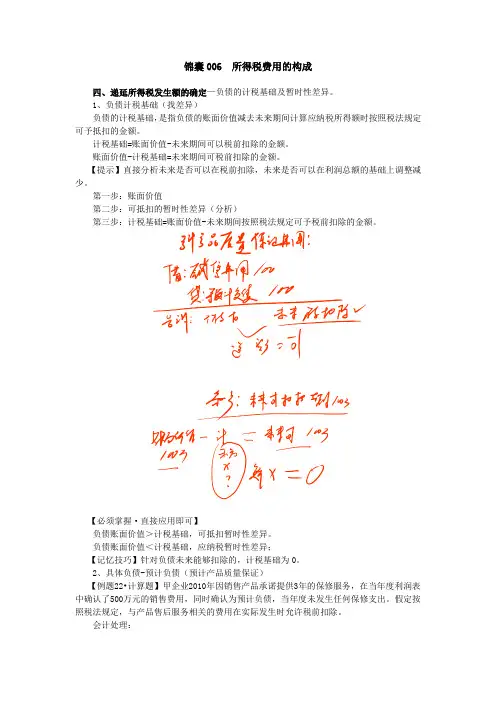 锦囊006 所得税费用的构成
四、递延所得税发生额的确定—负债的计税基础及暂时性差异。
1、负债计税基础（找差异）
负债的计税基础，是指负债的账面价值减去未来期间计算应纳税所得额时按照税法规定
可予抵扣的金额。
计税基础=账面价值-未来期间可以税前扣除的金额。
账面价值-计税基础=未来期间可税前扣除的金额。
【提示】直接分析未来是否可以在税前扣除，未来是否可以在利润总额的基础上调整减
少。
第一步：账面价值
第二步：可抵扣的暂时性差异（分析）
第三步：计税基础=账面价值-未来期间按照税法规定可予税前扣除的金额。
产品质量保证费用：
借：销售费用 100
贷：预计负债 100
未来可扣除 ✓
未来可
100
= 0
【必须掌握·直接应用即可】
负债账面价值＞计税基础，可抵扣暂时性差异。
负债账面价值＜计税基础，应纳税暂时性差异；
【记忆技巧】针对负债未来能够扣除的，计税基础为0。
2、具体负债-预计负债（预计产品质量保证）
【例题22•计算题】甲企业2010年因销售产品承诺提供3年的保修服务，在当年度利润表
中确认了500万元的销售费用，同时确认为预计负债，当年度未发生任何保修支出。假定按
照税法规定，与产品售后服务相关的费用在实际发生时允许税前扣除。
会计处理：